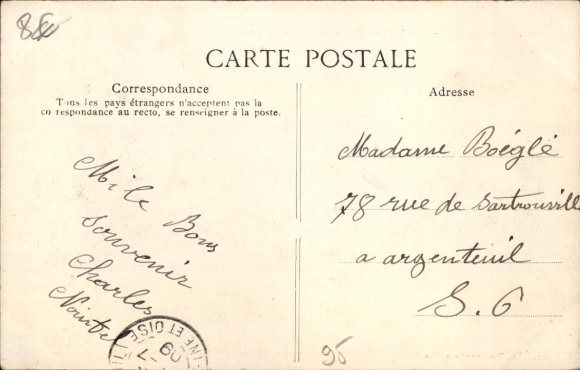 CARTE POSTALE
Correspondance
Tous les pays étrangers n'acceptent pas la
correspondance au recto, se renseigner à la poste.
Adresse
Mile Bons
souvenir
Charles
Madame Boéglé
78 rue de Sartrouville
a argenteuil
S. O
95
INE ET OISE
09